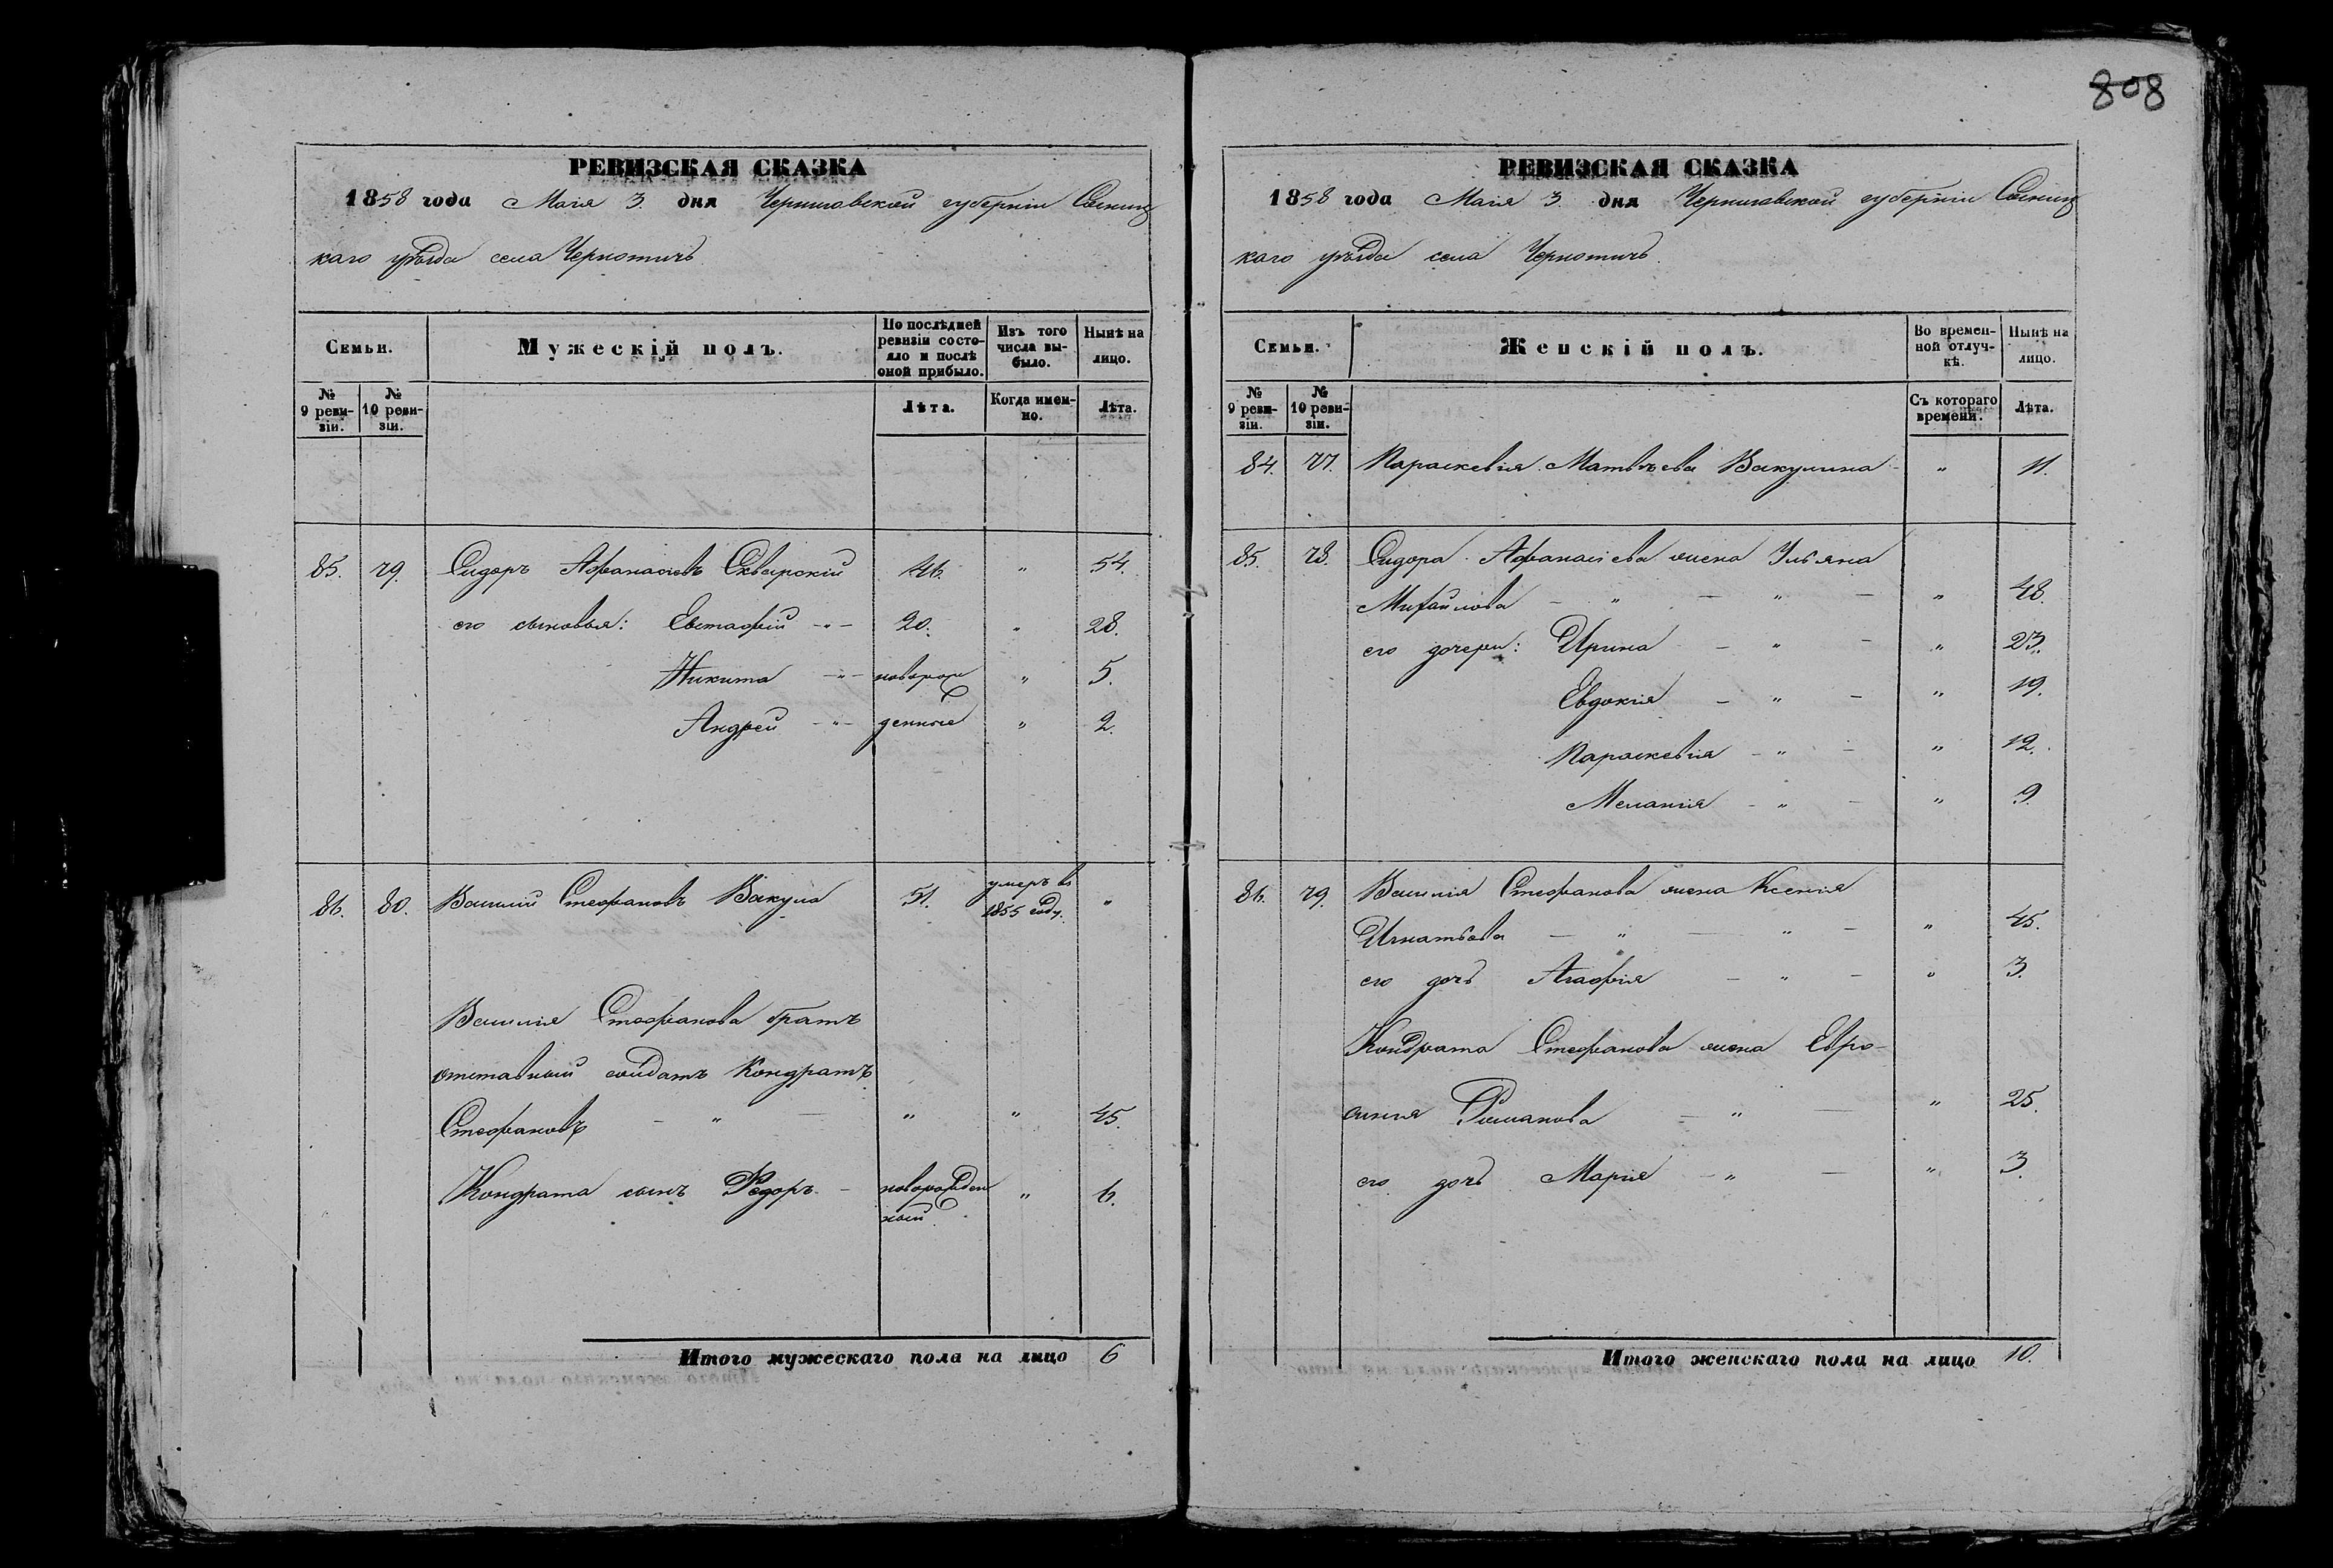 808
РЕВИЗСКАЯ СКАЗКА
1858 года Мая 3. дня Черниговской губерніи Сосниц
каго уѣзда села Чернотичъ
Семьи.
Мужескій полъ.
По послѣдней ревизіи состо-
яло и послѣ оной прибыло.
Изъ того числа вы-
было.
Нынѣ на лицо.
№ 9 реви-
зіи.
№ 10 реви-
зіи.
Лѣта.
Когда имен-
но.
Лѣта.
85. 79. Сидоръ Афанасіевъ Скварскій 46. " 54.
его сыновья: Евстафій -"- 20. " 28.
Никита -"- новорож " 5.
Андрей -"- денные " 2.
86. 80. Василій Стефановъ Вакула 51. умеръ въ
1855 году. "
Василія Стефанова братъ
отставный солдатъ Кондратъ
Стефановъ - " - " " 45.
Кондрата сынъ Федоръ - новорожден
ный " 6.
Итого мужескаго пола на лицо 6
РЕВИЗСКАЯ СКАЗКА
1858 года Мая 3 дня Черниговской губерніи Сосниц
каго уѣзда села Чернотичъ.
Семьи.
Женскій полъ.
Во времен-
ной отлуч-
кѣ.
Нынѣ на лицо.
№ 9 реви-
зіи.
№ 10 реви-
зіи.
Съ котораго времени.
Лѣта.
84. 77. Параскевія Матвѣева Вакулина " 11.
85. 78. Сидора Афанасіева жена Ульяна
Михайлова - " - " - " 48.
его дочери: Ирина - " - " 23.
Евдокія - " - " 19.
Параскевія - " - " 12.
Меланія - " - " 9.
86. 79. Василія Стефанова жена Ксенія
Игнатьева - " - " - " 45.
его дочь Агафія - " - " 3.
Кондрата Стефанова жена Евро-
синія Романова - " " 25.
его дочь Марія - " - " 3.
Итого женскаго пола на лицо 10.